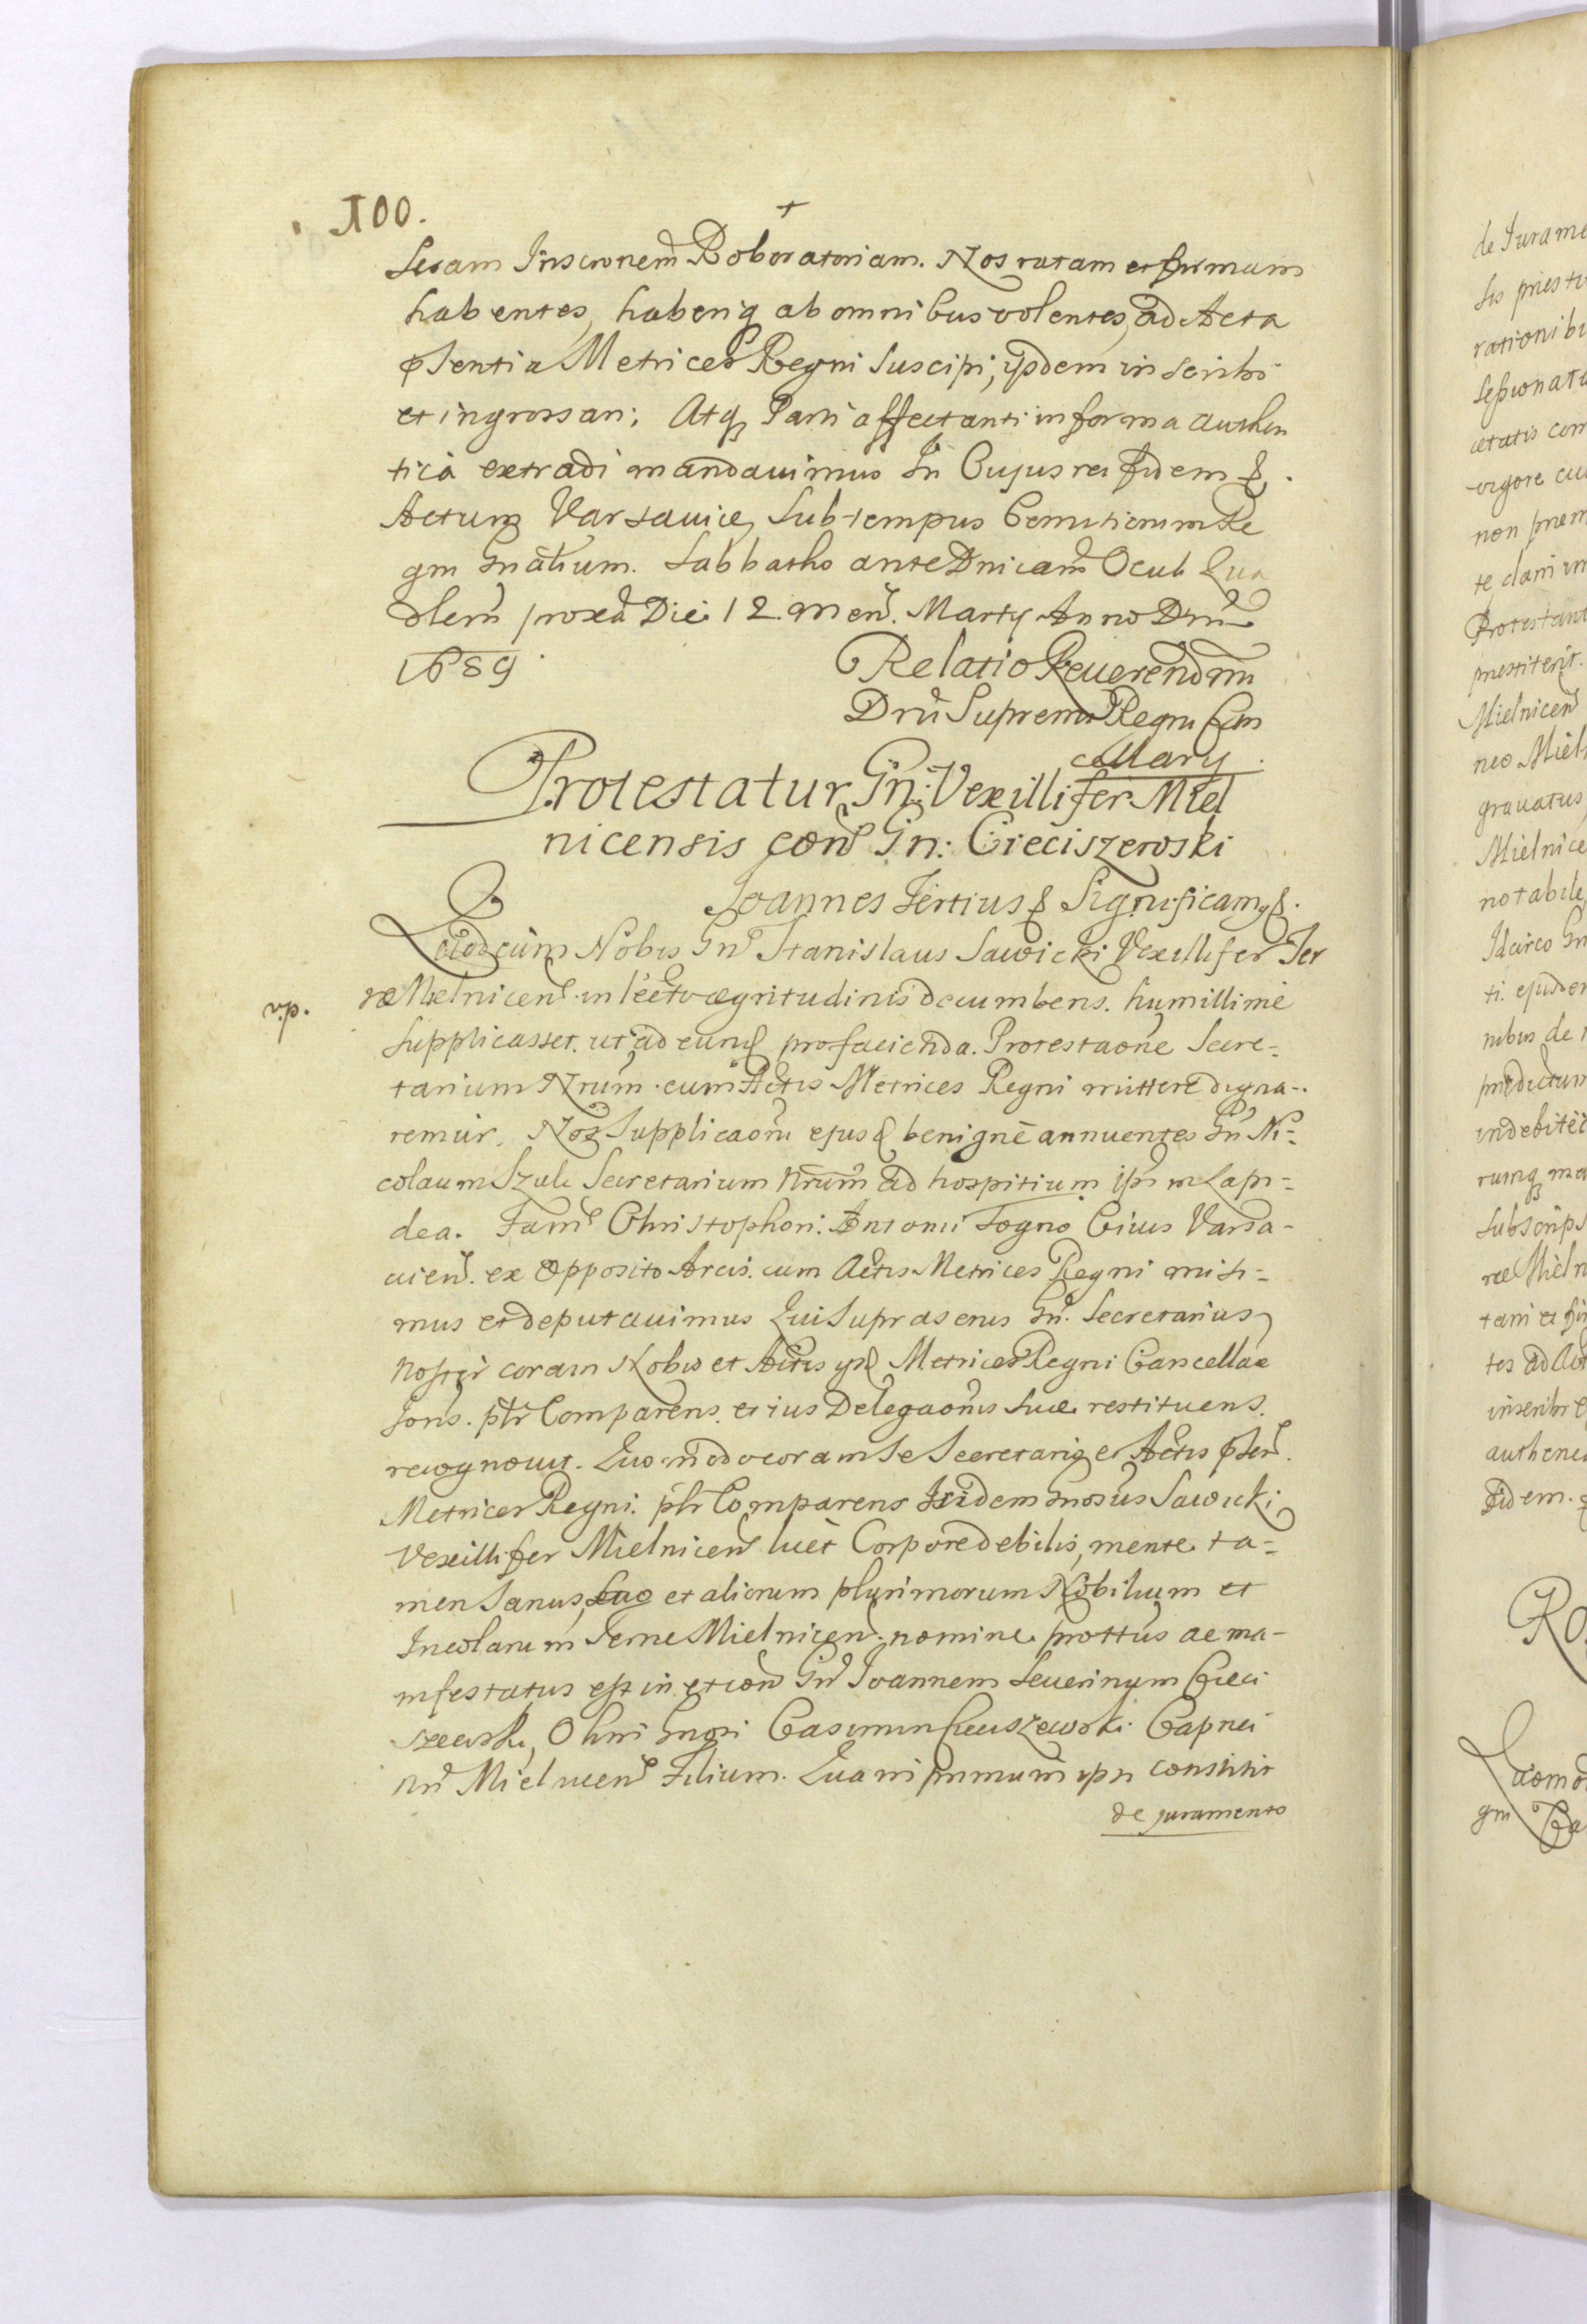 100.
+
Seram Inscronem Roboratoriam. Nos ratam et firmam
habentes, haberiq ab omnibus volentes, ad Acta
pſentia Metrices Regni Suscipi, ijsdem inscribi
et ingrossari; Atq Parti affectanti in forma authen
tica extradi mandavimus In Cujus rei fidem &.
Actum Varsaviæ, Sub tempus Comitiorum Re
gni Gnalium. Sabbatho ante Dnicam Oculi Qua
dlem proxa Die 12 Men. Martij Anno Dni
1689.
Relatio Reverendmi
Dni Supremi Regni Can
cellarij.
Protestatur Gn: Vexillifer Miel
nicensis con Gn: Cieciszewski
Joannes Tertius & Significamus &.
Quod cum Nobis Gn Stanislaus Sawicki Vexillifer Ter
v.p.
ræ Mielnicen in lecto ægritudinis decumbens. humillime
Supplicasset. ut ad eund pro facienda. Protestaone Secre-
tarium Nrum. cum Actis Metrices Regni mittere digna-
remur. Nos Supplicaoni ejusd benigne annuentes Gn Ni-
colaum Szulc Secretarium Nrum ad hospitium ips in Lapi-
dea. Fam Christophori Antonii Togno Civis Varsa-
vien. ex Opposito Arcis. cum Actis Metrices Regni misi-
mus et deputavimus Qui Suprascrius Gn. Secretarius
Noster coram Nobis et Actis ijsd Metrices Regni Cancellae
Joris. pſtr Comparens. et ius Delegaonis Suæ restituens.
recognovit. Quomodo coram Se Secretario et Actis pſen.
Metrices Regni. pſtr Comparens Ibidem Gnosus Sawicki
Vexillifer Mielnicen licet Corpore debilis, mente ta-
men Sanus, Suo et aliorum plurimorum Nobilium et
Incolarum Terræ Mielnicen. nomine prottus ac ma-
nifestatus est in et con Gn Joannem Severinum Cieci
szewski, Olim Gnosi Casimiri Cieciszewski Capnei
Mielnicen Filium. Quam primum ipsi constitit
de juramento